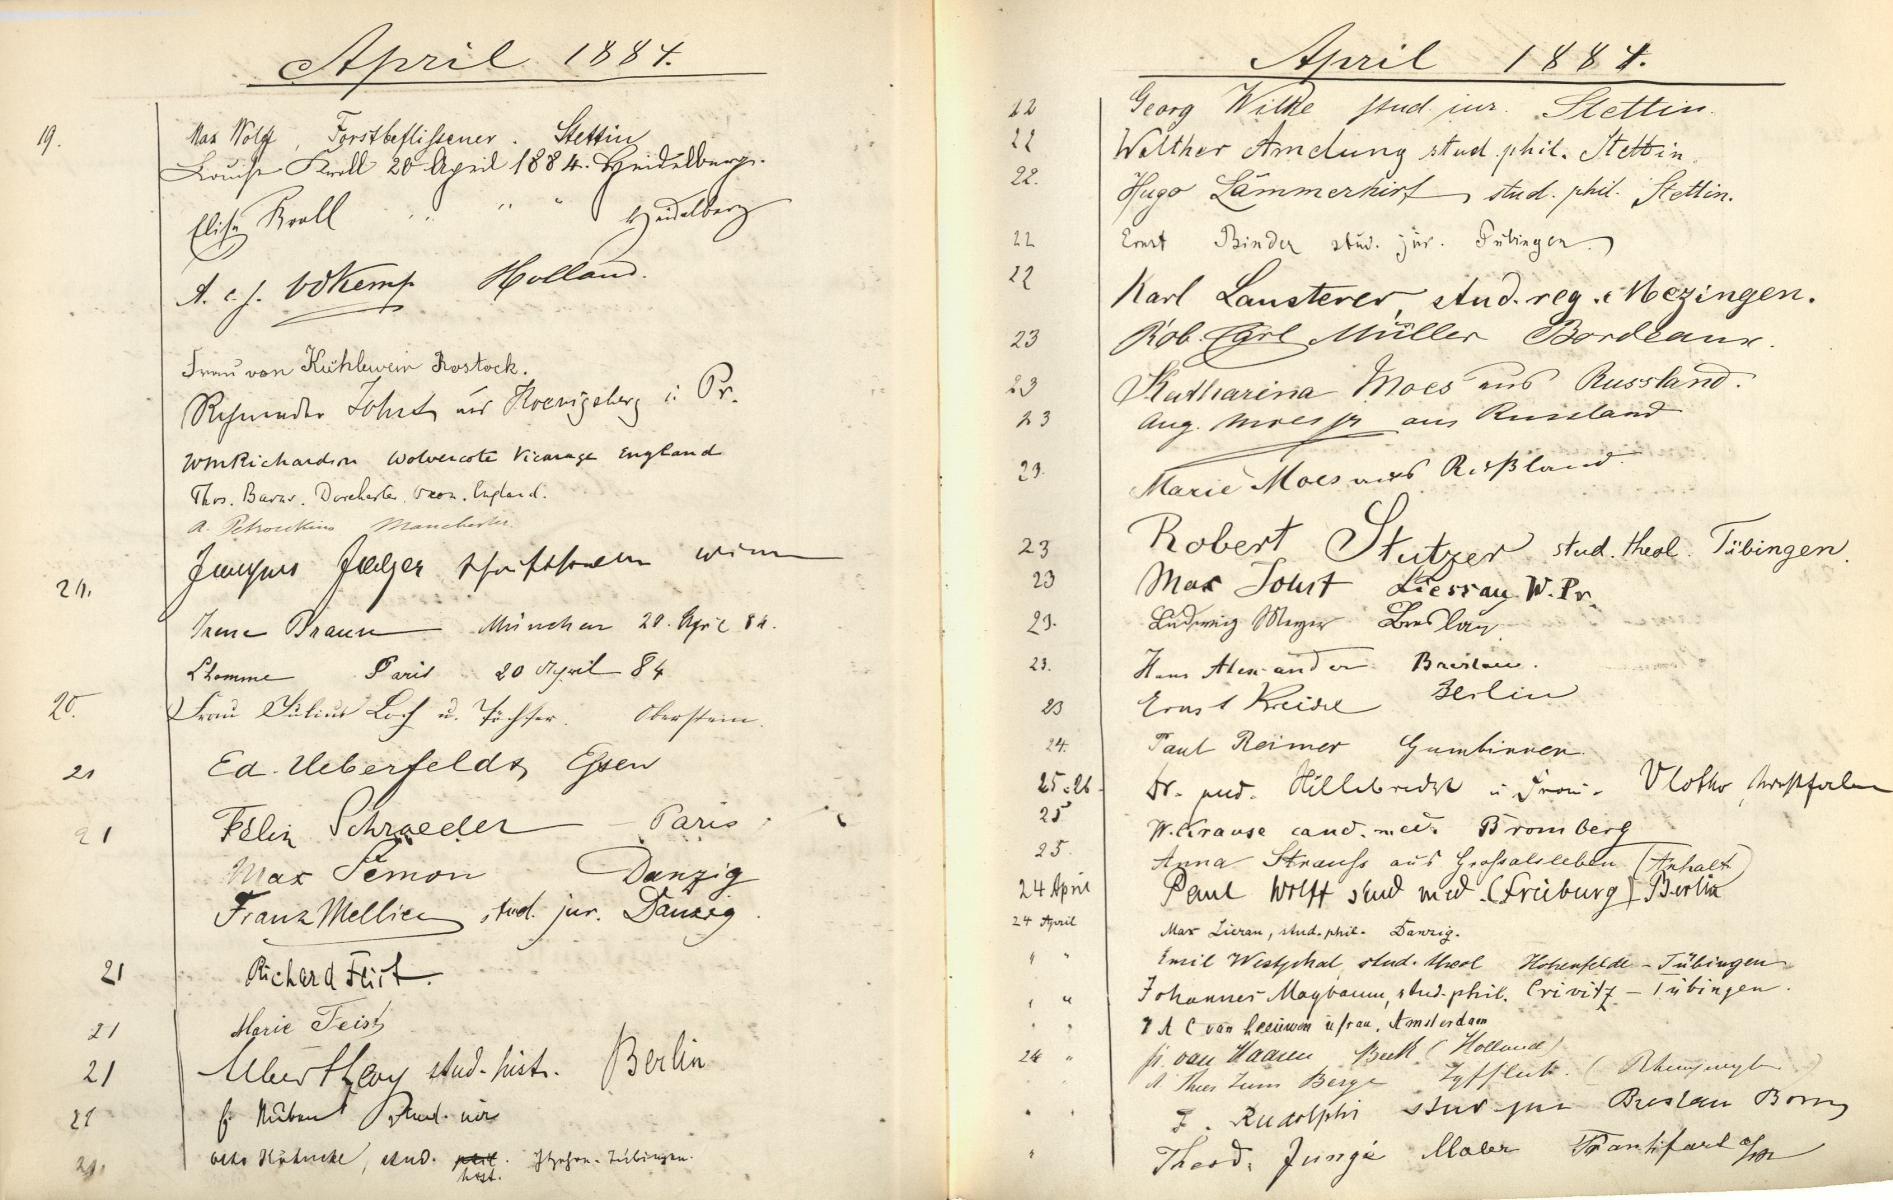 April 1884.
19. Max Wolff, Forstbeflissener. Stettin
Louise Kroll 20 April 1884. Heidelberg.
Elise Kroll " " " Heidelberg
A. c. j. vdKemp Holland.
Frau von Kühlewein Rostock.
Johst aus Koenigsberg i. Pr.
WmRichardson Wolvercote Vicarage England
Thos. Barns. Dorchester. Oxon. England.
A. Manchester
Jacques Jaeger Wien
20.
Irene Braun München 20. April 84.
Lhomme Paris 20 April 84
20. Frau Julius Loch u. Töchter. Oberstein.
21 Ed. Ueberfeldt, Essen
21 Félix Schroeder – Paris
Max Semon Danzig
Franz Mellien stud. jur. Danzig.
21 Richard Feist.
21 Marie Feist
21 Albert Levy stud. hist. Berlin
21 stud. iur
21. Otto stud. phil. hist. Tübingen.
April 1884.
22 Georg Wilke stud. jur. Stettin.
22 Walther Amelung stud. phil. Stettin.
22. Hugo Lämmerhirt, stud. phil. Stettin.
22 Ernst Binder stud. jur. Tübingen.
22 Karl Lausterer, stud. reg. Mezingen.
23 Rob. Carl Müller Bordeaux.
23 Katharina Moes aus Russland.
23 Aug. Moes jr aus Russland
23. Marie Moes aus Rußland.
23 Robert Stutzer stud. theol. Tübingen.
23 Max Johst Liessau W. Pr.
23. Ludwig Meyer Breslau.
23. Hans Alexander Breslau.
23 Ernst Kreisel Berlin
24. Paul Reimer Gumbinnen.
25.-26. Dr. med. Hillebrecht u. Frau. Vlotho, Westfalen
25 W. Krause cand. med. Bromberg
25. Anna Strauss aus Grossalsleben (Anhalt)
24 April Paul Wolff stud med. (Freiburg) Berlin
24 April Max Lierau, stud. phil. Danzig.
" " Emil Westphal, stud. theol Hohenfelde – Tübingen
" " Johannes Maybaum, stud. phil. Crivitz – Tübingen.
" " J A C van Leeuwen u frau. Amsterdam
24 " fr. van Haaren Beek (Holland)
" A. Thees zum Berge Zyfflich.
" " F. Rudolphi stud jur Breslau Bonn
" Theod. Junge Maler Frankfurt a/M